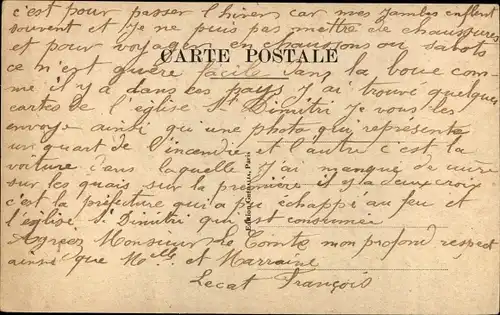 c'est pour passer l'hiver car mes jambes enflent
souvent et Je ne puis pas mettre de chaussures
et pour voyager en chaussons ou sabots
CARTE POSTALE
ce n'est guère facile dans la boue com-
me il y a dans ces pays J'ai trouvé quelques
cartes de l'église St Dimitri Je vous les
envoye ainsi qui une photo qui représente
un quart de l'incendie et l'autre c'est la
voiture dans laquelle J'ai manqué de
sur les quais sur la première il y a deux croix
c'est la préfecture qui a pu échappé au feu et
l'église St Dimitri qui est consumée
Agréez Monsieur Le Comte mon profond respect
ainsi que Melle et Marraine
Lecat François
Edition Paris